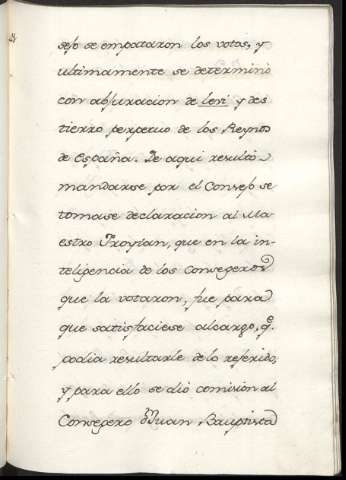 sejo se empataron los votos, y
ultimamente se determinó
con abjuracion de levi y des
tierro perpetuo de los Reynos
de España. De aqui resultó
mandarse por el Consejo se
tomase declaracion al Ma-
estro Froylan, que en la in-
teligencia de los Consegeros
que la votaron, fue para
que satisfaciese al cargo, q.e
podia resultarle de lo referido,
y para ello se dió comision al
Consegero Dn Juan Bauptista